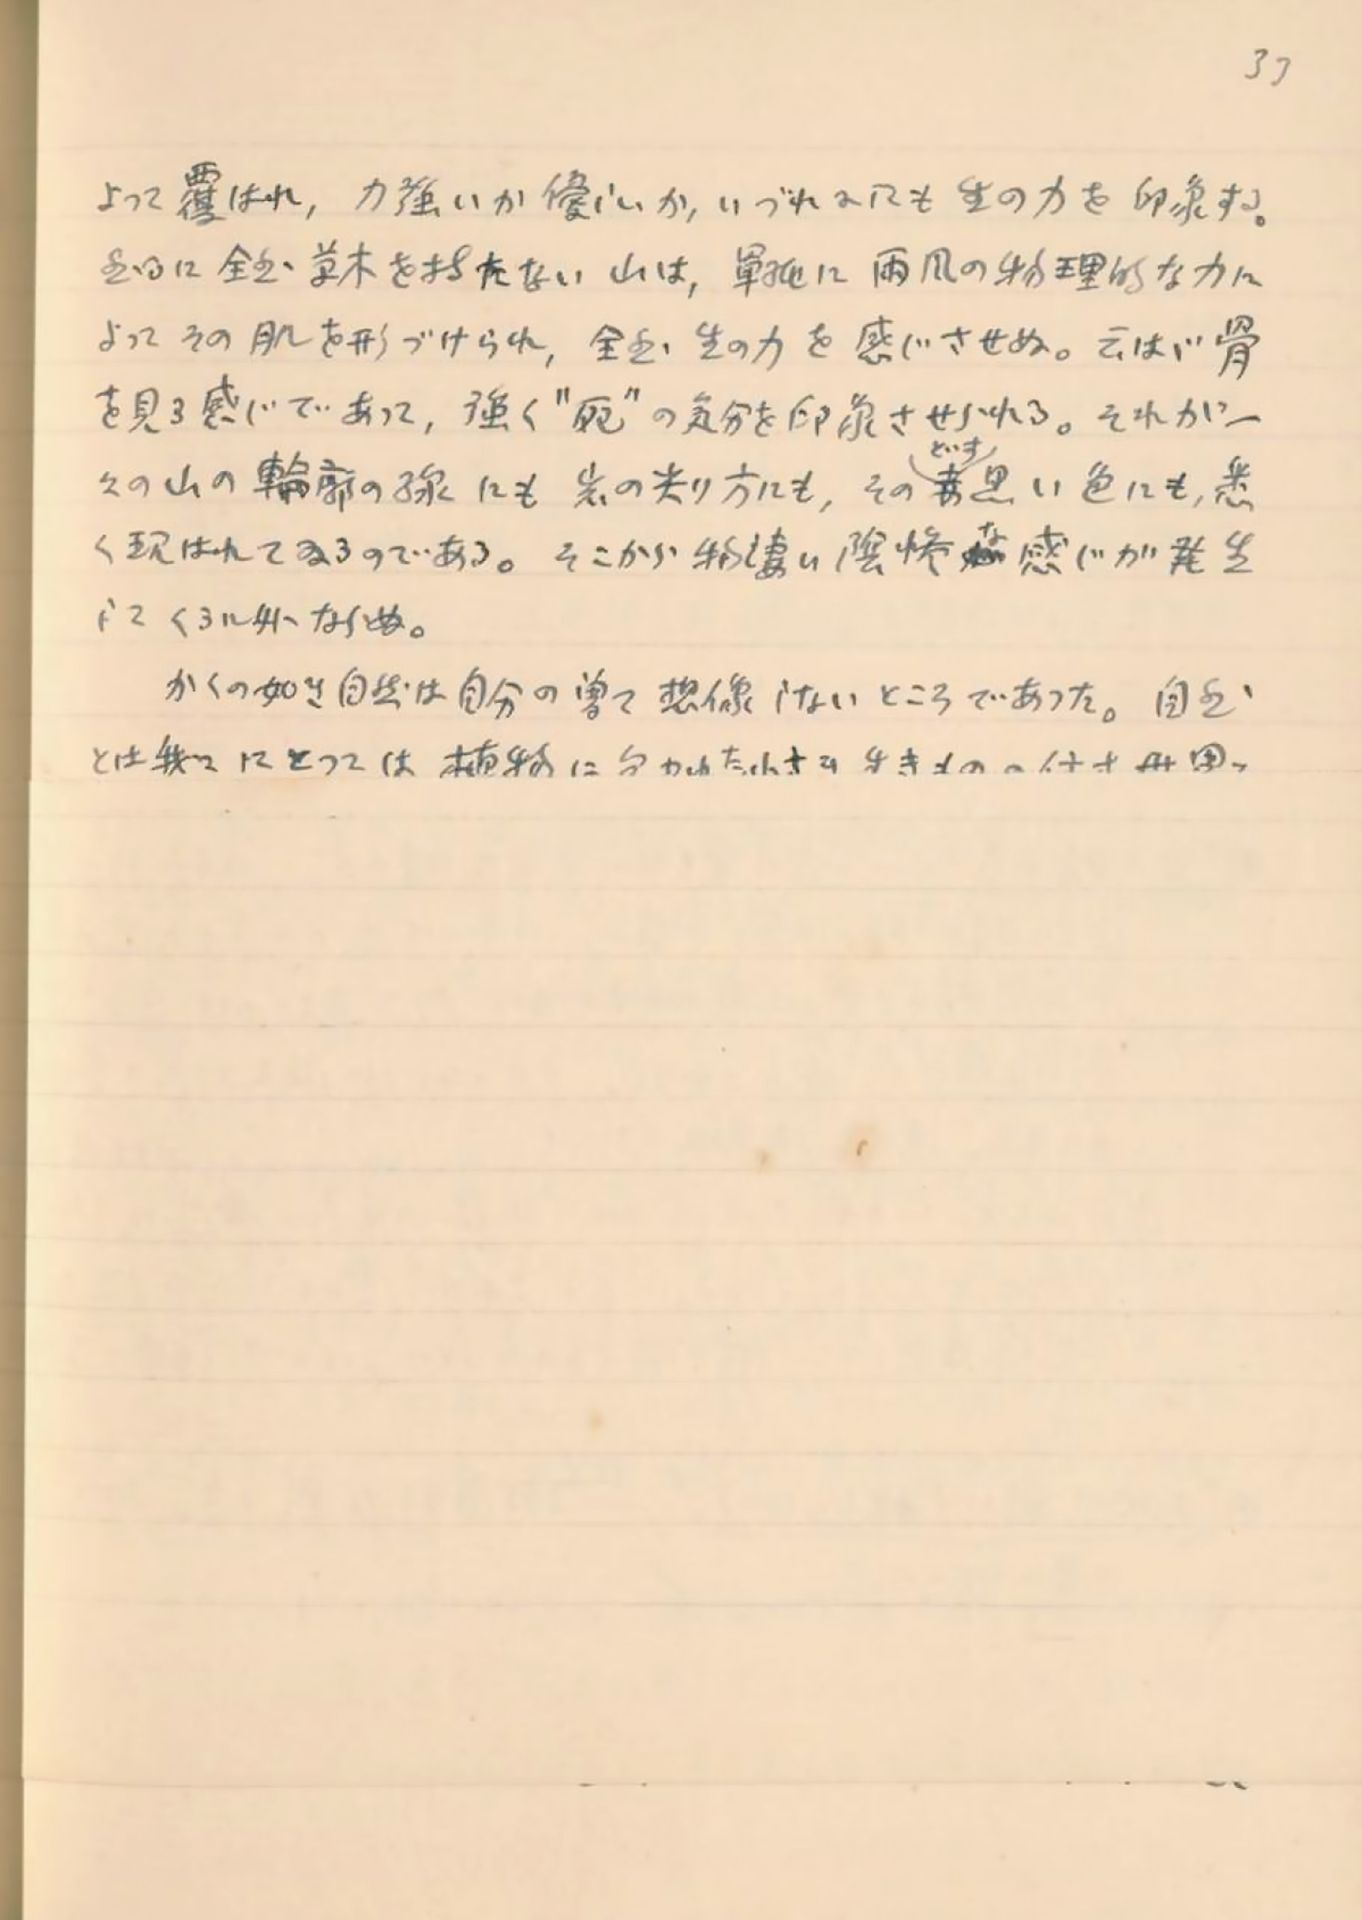 37
よって覆はれ, 力強いか優しいか, いづれにしても生の力を印象する。
然るに全然草木を持たない山は, 単純に雨風の物理的な力に
よってその肌を形づけられ, 全然生の力を感じさせぬ。云はゞ骨
を見る感じであって, 強く"死"の気分を印象させられる。それが一
々の山の輪廓の線にも岩の尖り方にも, その黒い色にも, 悉
どす
く現はれてゐるのである。そこから物凄い陰惨な感じが発生
してくるに外ならぬ。
かくの如き自然は自分の曽て想像しないところであった。自然
とは我々にとっては植物に